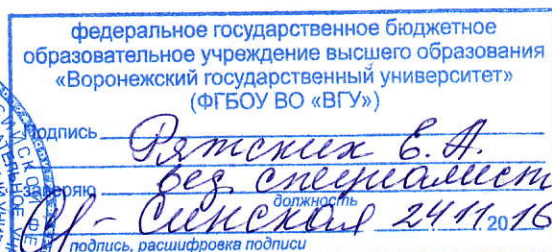 федеральное государственное бюджетное
образовательное учреждение высшего образования
«Воронежский государственный университет»
(ФГБОУ ВО «ВГУ»)
Подпись Ряжских Е. А.
заверяю вед. специалист
должность
Синская 24.11.2016
подпись, расшифровка подписи